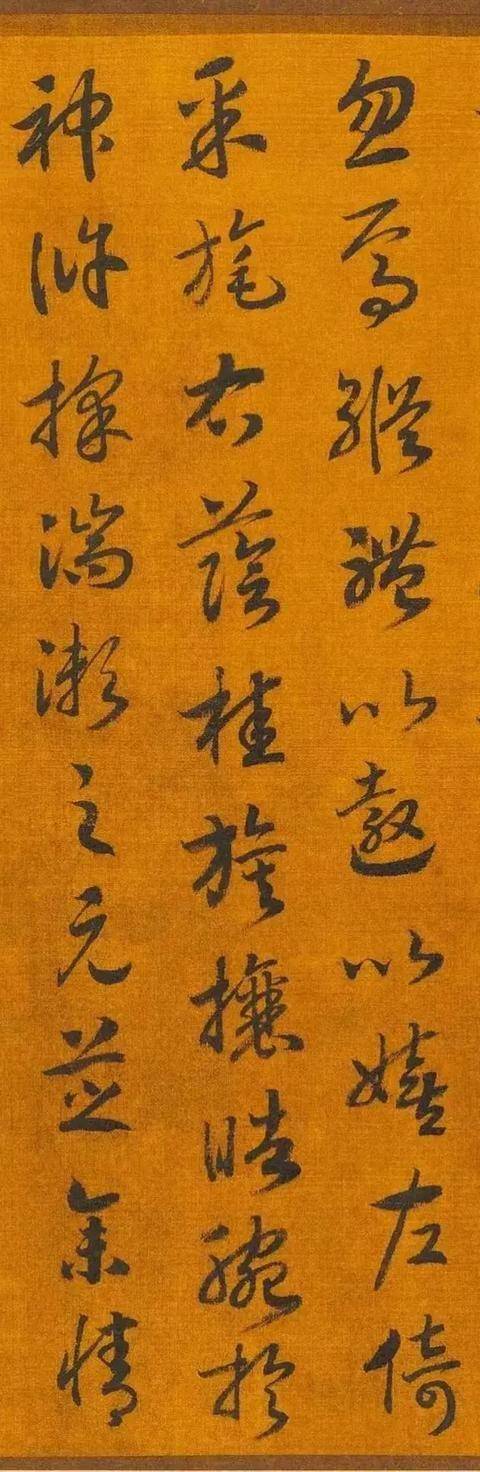 忽焉縱體以遨以嬉左倚
采旄右蔭桂旗攘皓腕於
神滸採湍瀨之元芝余情